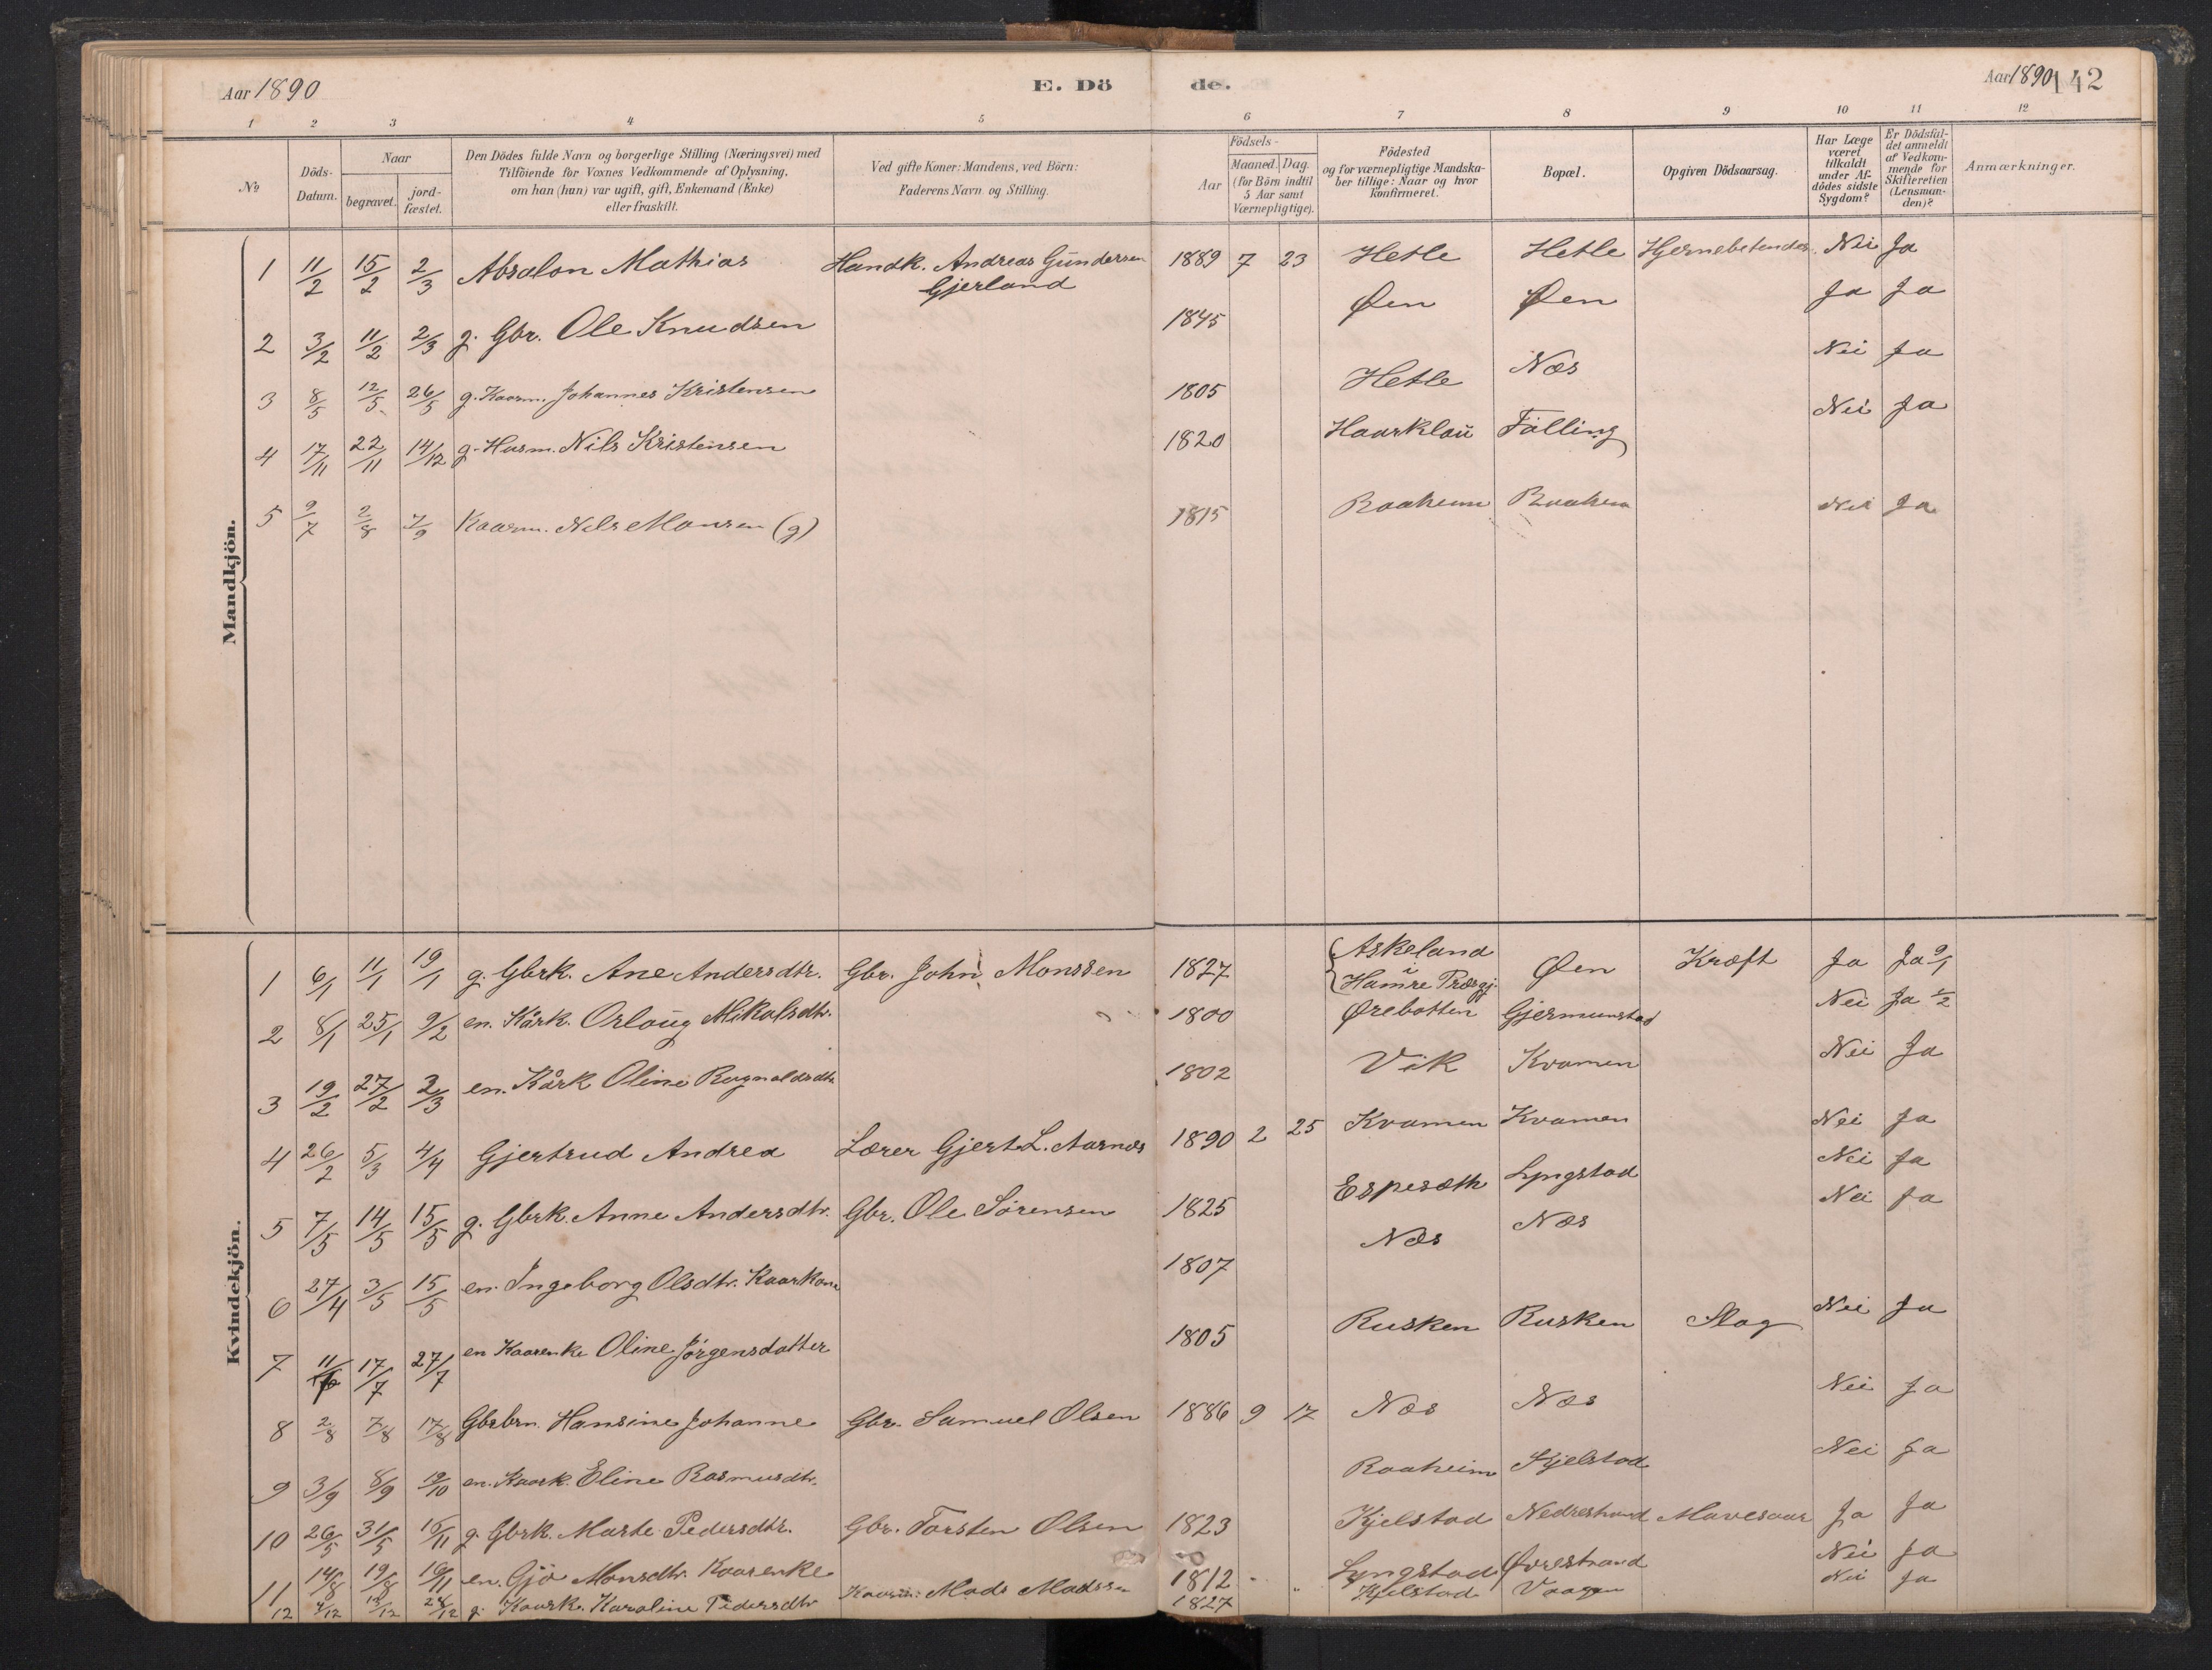 Aar 1890 E. Dö de. Aar 1890 142
1 2 3 4 5 6 7 8 9 10 11 12
№
Döds-Datum.
Naar
begravet.
jord-fæstet.
Den Dödes fulde Navn og borgerlige Stilling (Næringsvei) med
Tilföiende for Voxnes Vedkommende af Oplysning,
om han (hun) var ugift, gift, Enkemand (Enke)
eller fraskilt.
Ved gifte Koner: Mandens, ved Börn:
Faderens Navn og Stilling.
Födsels-
Aar
Maaned. Dag.
(for Börn indtil
5 Aar samt
Værnepligtige).
Födested
og for værnepligtige Mandska-
ber tillige: Naar og hvor
konfirmeret.
Bopæl.
Opgiven Dödsaarsag.
Har Læge
været
tilkaldt
under Af-
dödes sidste
Sygdom?
Er Dödsfal-
det anmeldt
af Vedkom-
mende for
Skifteretten
(Lensman-
den)?
Anmærkninger.
Mandkjön.
1 11/2 15/2 2/3 Absalon Mathias Handk. Andreas Gundersen 1889 7 23 Hetle Hetle Hjernebetendes. Nei Ja
Gjerland
2 3/2 11/2 2/3 g. Gbr. Ole Knudsen 1845 Øen Øen Ja Ja
3 8/5 12/5 26/5 g. Kaarm. Johannes Kristensen 1805 Hetle Næs Nei Ja
4 17/11 22/11 14/12 g. Husm. Nils Kristensen 1820 Haarklau Fölling Nei Ja
5 9/7 2/8 7/9 Kaarm. Nils Monsen (g) 1815 Raaheim Raaheim Nei Ja
Kvindekjön.
1 6/1 11/1 19/1 g. Gbrk. Ane Andersdtr. Gbr. John Monssen 1827 Askeland Øen Kræft Ja Ja 9/1
Hamre Præsgj.
2 8/1 25/1 9/2 en. Kårk. Orloug Mikalsdtr. 1800 Ørebotten Gjermunstad Nei Ja 1/2
3 19/2 27/2 2/3 en. Kårk Oline Ragnaldsdtr 1802 Vik Kvamen Nei Ja
4 26/2 5/3 4/4 Gjertrud Andrea Lærer Gjert L. Aarnæs 1890 2 25 Kvamen Kvamen Nei Ja
5 7/5 14/5 15/5 g. Gbrk. Anne Andersdtr. Gbr. Ole Sörensen 1825 Espesæth Lyngstad Nei Ja
6 27/4 3/5 15/5 en. Ingeborg Olsdtr. Kaarkone 1807 Næs Næs Nei Ja
7 11/7 17/7 27/7 en Kaarenke Oline Jörgensdatter 1805 Rusken Rusken Slag Nei Ja
8 2/8 7/8 17/8 Gbrbrn. Hansine Johanne Gbr. Samuel Olsen 1886 9 17 Næs Næs Nei Ja
9 3/9 8/9 19/10 en. Kaark. Eline Rasmusdtr. Raaheim Kjelstad Nei Ja
10 26/5 31/5 16/11 g. Gbrk. Marte Pedersdtr. Gbr. Torsten Olsen 1823 Kjelstad Nedrestrand Mavesaar Ja Ja
11 14/8 19/8 16/11 en. Gjö Monsdtr. Kaarenke 1812 Lyngstad Øvrestrand Nei Ja
12 4/12 12/12 28/12 g. Kaark. Karoline Pedersdtr Kaarm: Mads Madssen 1827 Kjelstad Vaagen Nei Ja